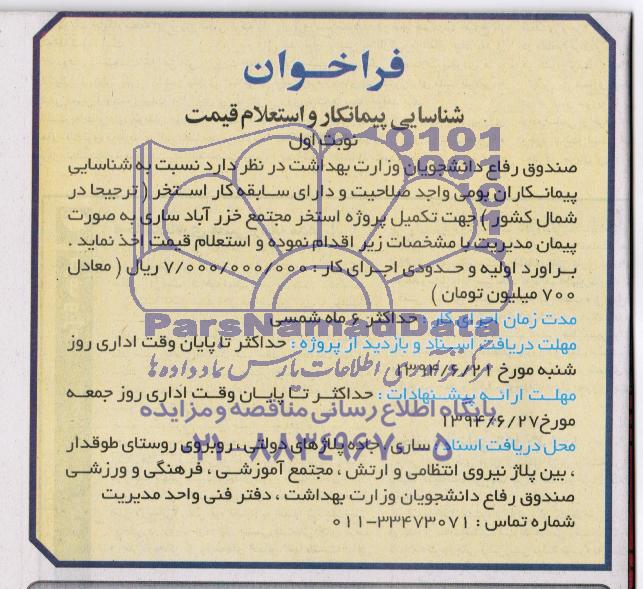 فراخـوان
شناسایی پیمانکار و استعلام قیمت
نوبت اول
صندوق رفاع دانشجویان وزارت بهداشت در نظر دارد نسبت به شناسایی
پیمانـکاران بومی واجد صلاحیت و دارای سـابقه کار اسـتخر ( ترجیحا در
شمال کشور ) جهت تکمیل پروژه استخر مجتمع خزر آباد ساری به صورت
پیمان مدیریت با مشخصات زیر اقدام نموده و استعلام قیمت اخذ نماید .
بـراورد اولیه و حـدودی اجـرای کار : ۷/۰۰۰/۰۰۰/۰۰۰ ریال ( معادل
۷۰۰ میلیون تومان )
مدت زمان اجرای کار : حداکثر ۶ ماه شمسی
مهلت دریافت اسـناد و بازدید از پروژه : حداکثر تا پایان وقت اداری روز
شنبه مورخ ۱۳۹۴/۶/۲۱
مهلـت ارائـه پیشـنهادات : حداکثر تـا پایـان وقـت اداری روز جمعـه
مورخ ۱۳۹۴/۶/۲۷
محل دریافت اسناد : ساری ، جاده پلاژهای دولتی ، روبروی روستای طوقدار
، بین پلاژ نیروی انتظامی و ارتش ، مجتمع آموزشـی ، فرهنگی و ورزشـی
صندوق رفاع دانشجویان وزارت بهداشت ، دفتر فنی واحد مدیریت
شماره تماس : ۳۳۴۷۳۰۷۱-۰۱۱
ParsNamadData
مرکز فرآوری اطلاعات پارس نماد داده ها
پایگاه اطلاع رسانی مناقصه و مزایده
۰۲۱-۸۸۳۴۹۶۷۰-۵